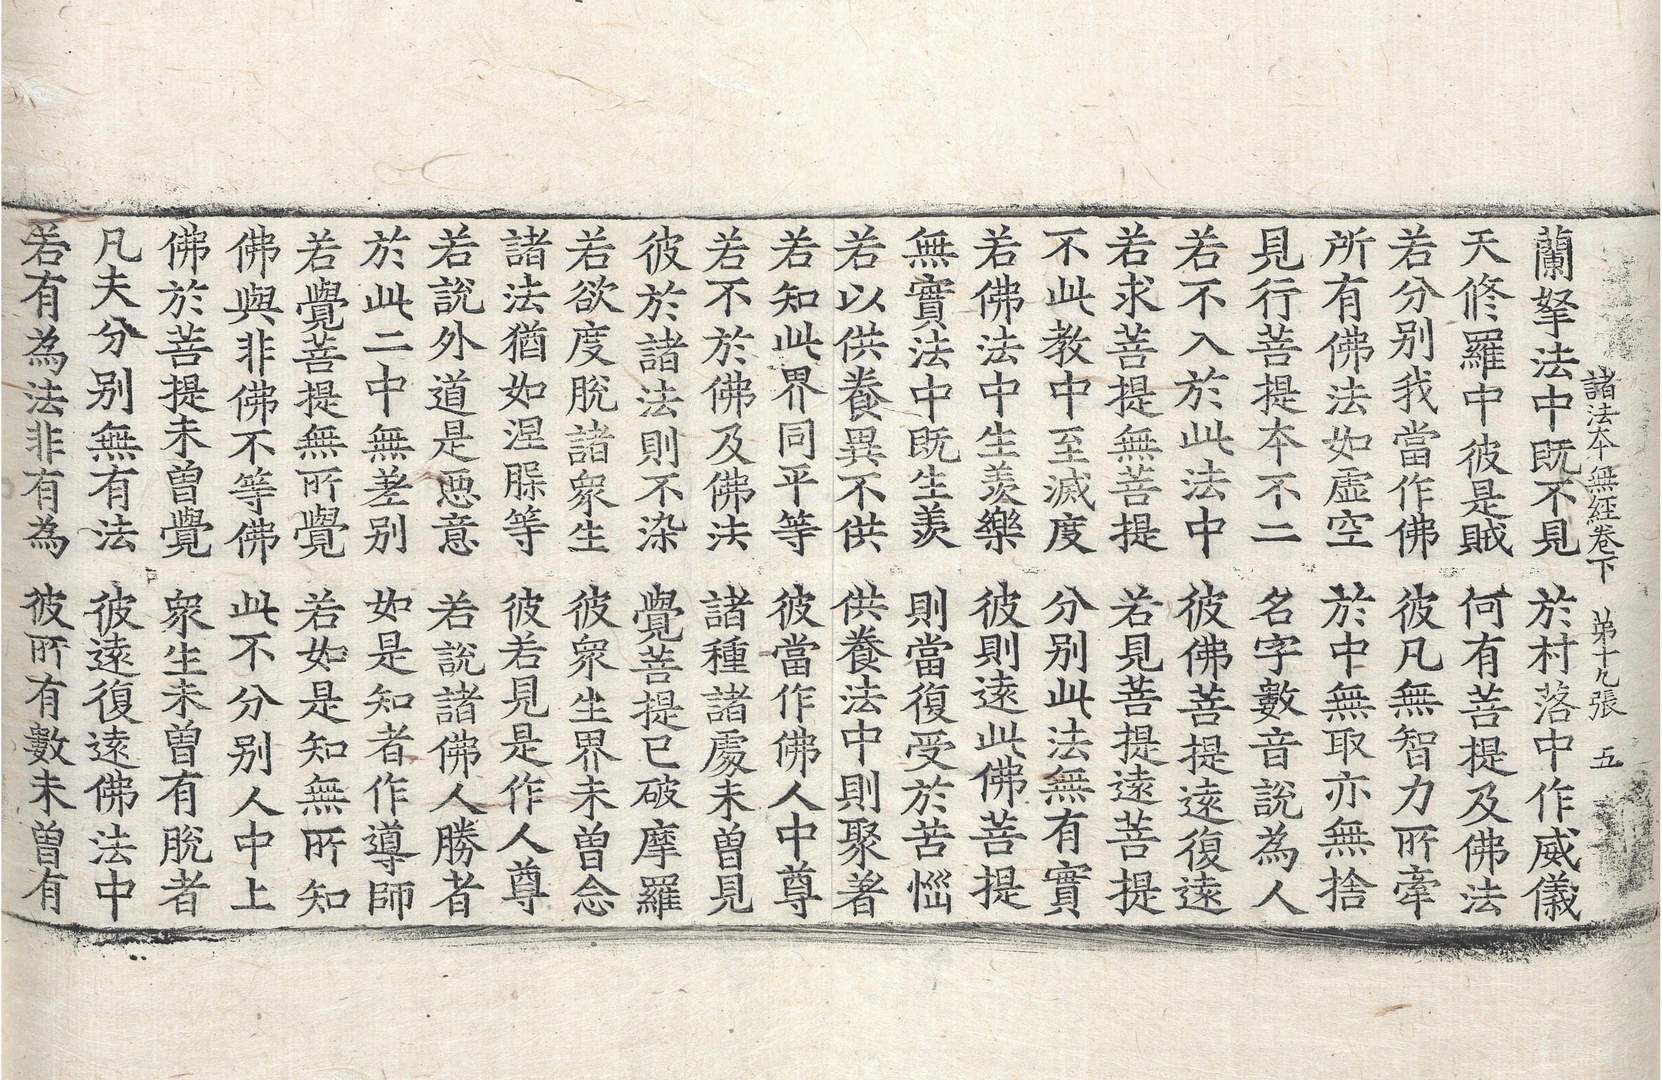 諸法本無經卷下 第十九張 五
蘭拏法中既不見 於村落中作威儀
天修羅中彼是賊 何有菩提及佛法
若分別我當作佛 彼凡無智力所牽
所有佛法如虛空 於中無取亦無捨
見行菩提本不二 名字數音說為人
若不入於此法中 彼佛菩提遠復遠
若求菩提無菩提 若見菩提遠菩提
不此教中至滅度 分別此法無有實
若佛法中生羨樂 彼則遠此佛菩提
無實法中既生羨 則當復受於苦惱
若以供養異不供 供養法中則聚著
若知此界同平等 彼當作佛人中尊
若不於佛及佛法 諸種諸處未曾見
彼於諸法則不染 覺菩提已破摩羅
若欲度脫諸眾生 彼眾生界未曾念
諸法猶如涅槃等 彼若見是作人尊
若說外道是惡意 若說諸佛人勝者
於此二中無差別 如是知者作導師
若覺菩提無所覺 若如是知無所知
佛與非佛不等佛 此不分別人中上
佛於菩提未曾覺 眾生未曾有脫者
凡夫分別無有法 彼遠復遠佛法中
若有為法非有為 彼所有數未曾有